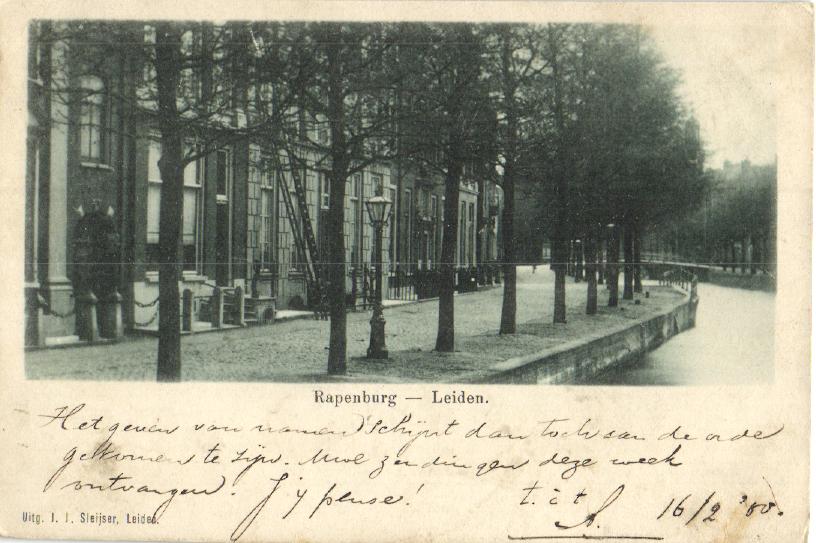 Rapenburg — Leiden.
Het geven van namen schijnt dan toch aan de orde
gekomen te zijn. Uwe zendingen deze week
ontvangen. J'y pense!
t. à t.
A. 16/2 '00.
Uitg. J. J. Sleijser, Leiden.